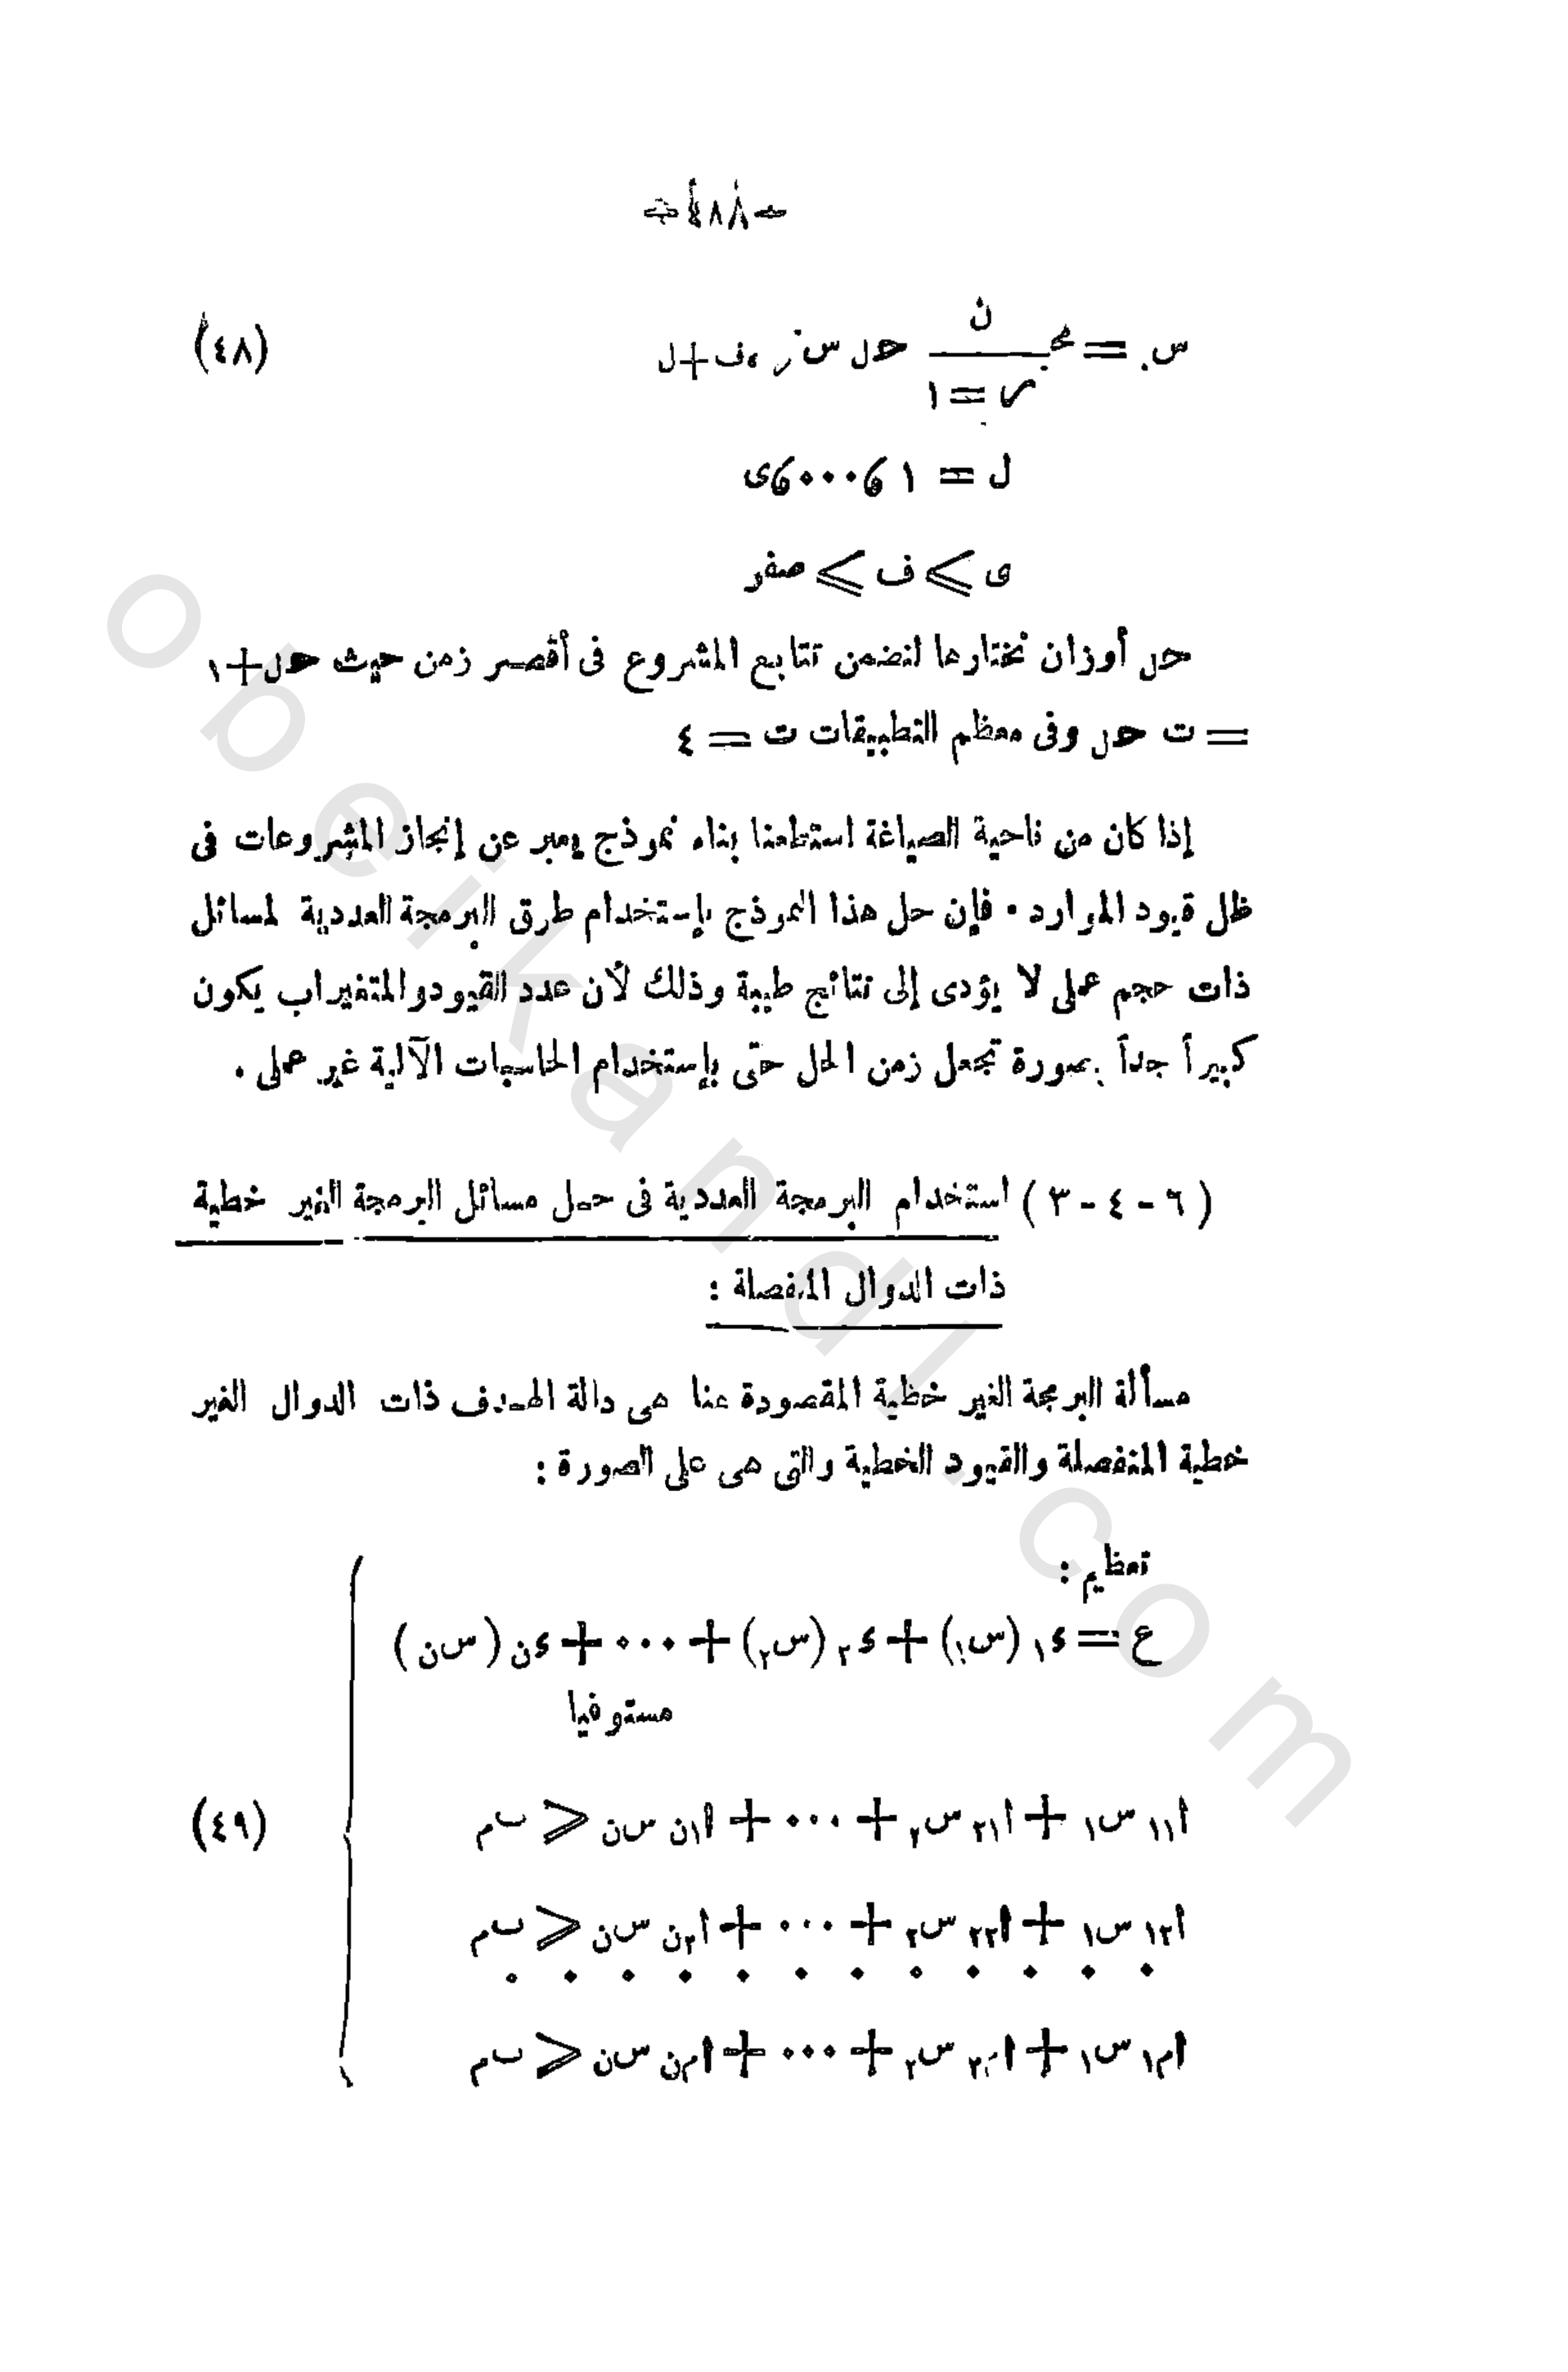 -٤٨٨-
س. = مجـ ن ر=١ حـل س ر ،ف+ل (٤٨)
ل = ١ ، ... ، ى
ى ⩾ ف ⩾ صفر
حل أوزان نختارها لنضمن تتابع المشروع فى أقصر زمن حيث حل+١
= ت حل وفى معظم التطبيقات ت = ٤
إذا كان من ناحية الصياغة استطعنا بناء نموذج يعبر عن إنجاز المشروعات فى
ظل قيود الموارد . فإن حل هذا النموذج بإستخدام طرق البرمجة العددية لمسائل
ذات حجم عملى لا يؤدى إلى نتائج طيبة وذلك لأن عدد القيود والمتغيراب يكون
كبيراً جداً بصورة تجعل زمن الحل حتى بإستخدام الحاسبات الآلية غير عملى .
(٦ - ٤ - ٣) استخدام البرمجة العددية فى حل مسائل البرمجة الغير خطية
ذات الدوال المنفصلة :
مسألة البرمجة الغير خطية المقصودة هنا هى دالة الهدف ذات الدوال الغير
خطية المنفصلة والقيود الخطية والتى هى على الصورة :
تعظيم :
ع = د١ (س١) + د٢ (س٢) + ... + دن (سن)
مستوفيا
ا١١ س١ + ا٢١ س٢ + ... + ا١ن سن ⩽ ٮم (٤٩)
ا١٢ س١ + ا٢٢ س٢ + ... + ا٢ن سن ⩽ ٮم
. . . . . . . . . . . .
ام١ س١ + ام٢ س٢ + ... + امن سن ⩽ ٮم
obeikandl.com